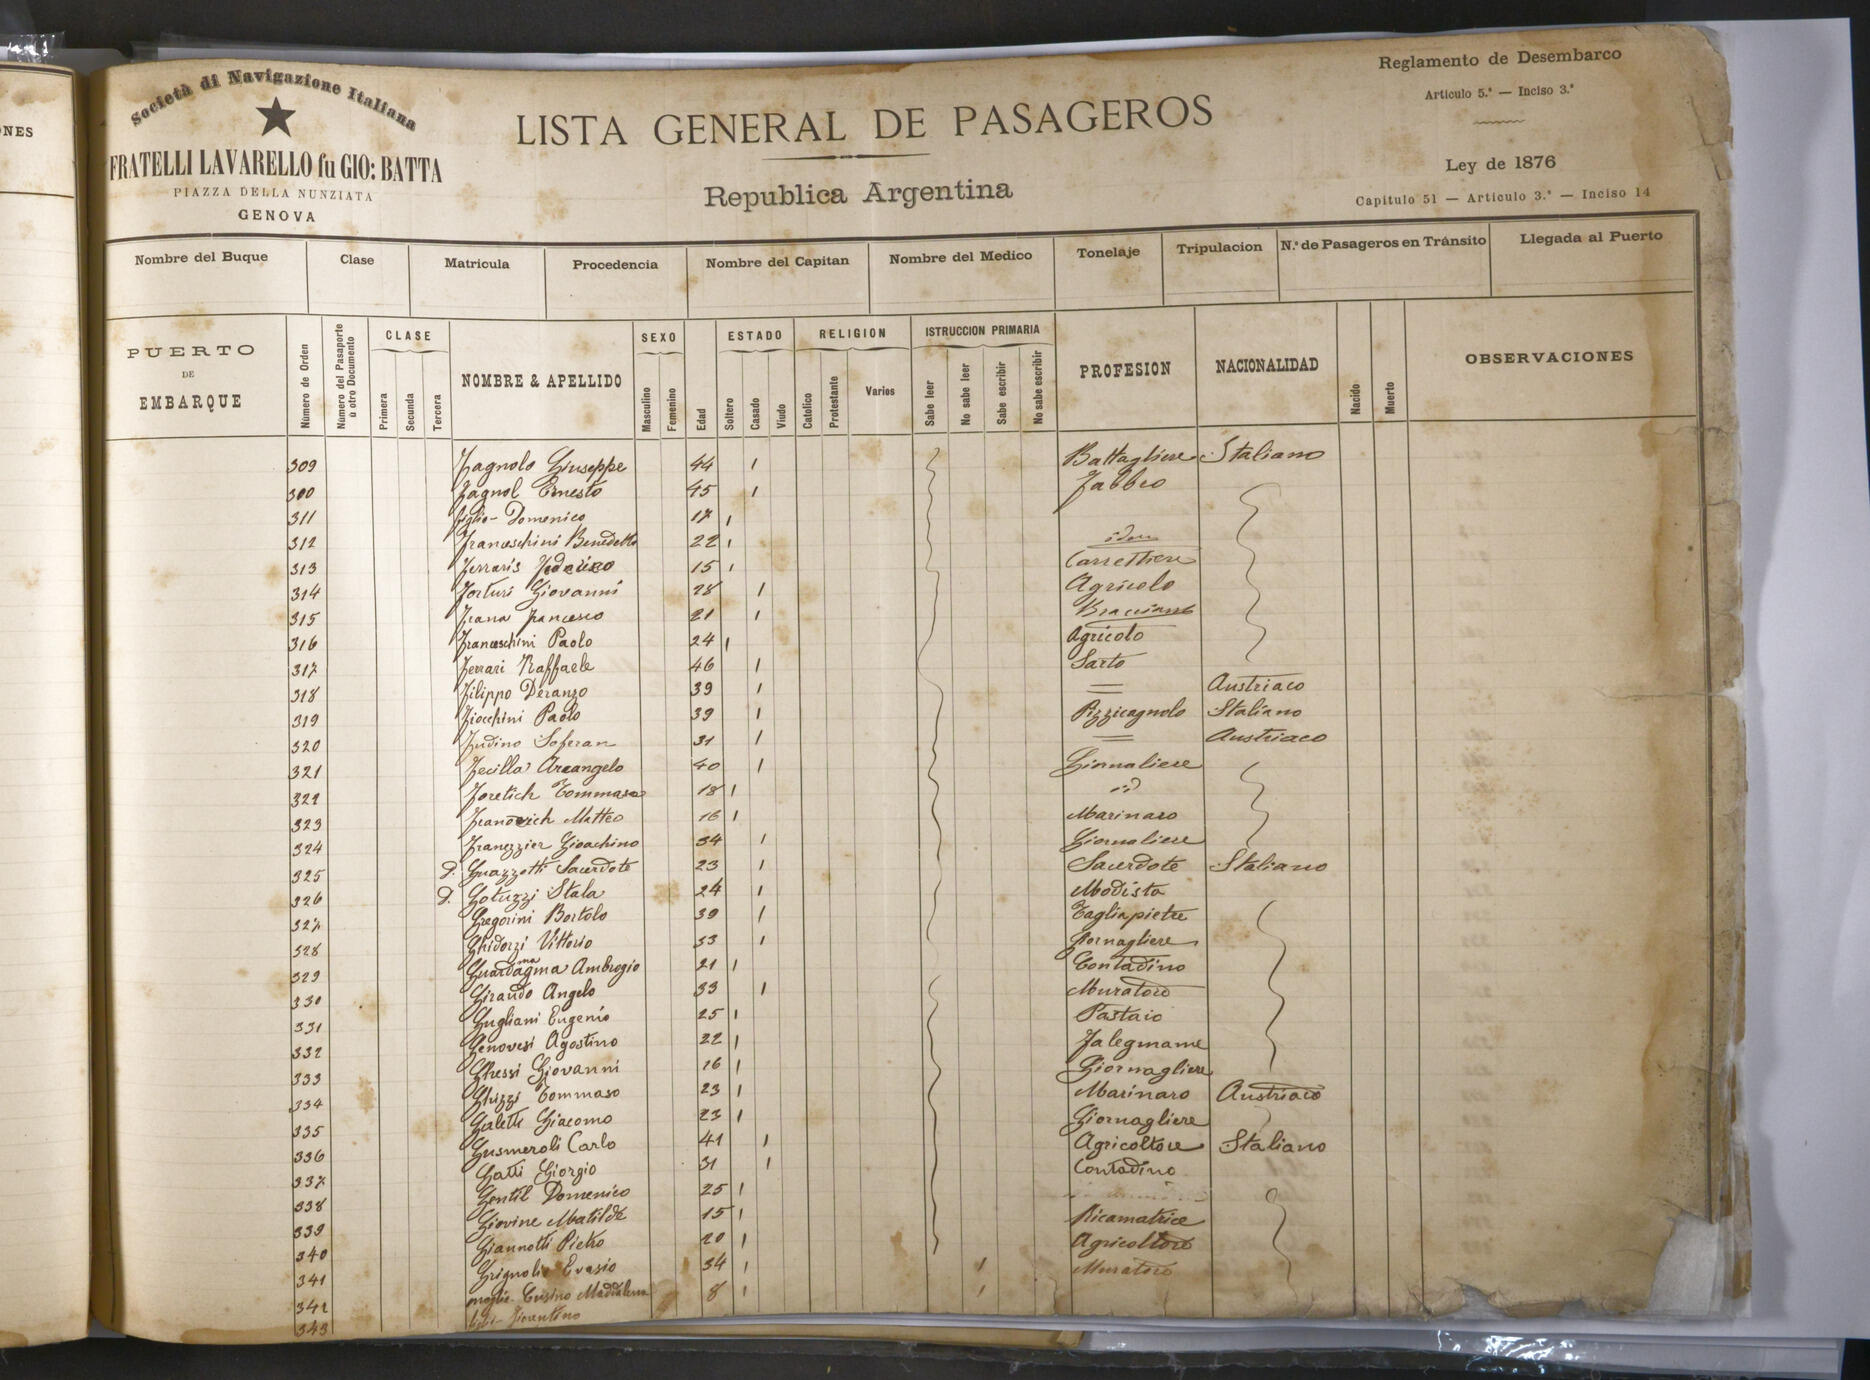 NES
Società di Navigazione Italiana
FRATELLI LAVARELLO fu GIO: BATTA
PIAZZA DELLA NUNZIATA
GENOVA
LISTA GENERAL DE PASAGEROS
Republica Argentina
Reglamento de Desembarco
Articulo 5.º — Inciso 3.º
Ley de 1876
Capitulo 51 — Articulo 3.º — Inciso 14
Nombre del Buque Clase Matricula Procedencia Nombre del Capitan Nombre del Medico Tonelaje Tripulacion N.º de Pasageros en Tránsito Llegada al Puerto
PUERTO DE EMBARQUE Número de Orden Número del Pasaporte ù otro Documento CLASE Primera Secunda Tercera NOMBRE & APELLIDO SEXO Masculino Femenino Edad ESTADO Soltero Casado Viudo RELIGION Catolico Protestante Varios ISTRUCCION PRIMARIA Sabe leer No sabe leer Sabe escribir No sabe escribir PROFESION NACIONALIDAD Nacido Muerto OBSERVACIONES
309 Fagnolo Giuseppe 44 1 Battagliere Italiano
300 Fagnol Ernesto 45 1 Fabbro
311 figlio - Domenico 17 1
312 Franceschini Benedetto 22 1 idem
313 Ferraris Federico 15 1 Carrettiere
314 Forturi Giovanni 28 1 Agricolo
315 Frana Francesco 21 1 Bracciante
316 Franceschini Paolo 24 1 Agricolo
317 Ferrari Raffaele 46 1 Sarto
318 Filippo Deranzo 39 1 = Austriaco
319 Fiocchini Paolo 39 1 Pizzicagnolo Italiano
320 Fudino Soferan 31 1 = Austriaco
321 Fecilla Arcangelo 40 1 Giornaliere
322 Foretich Tommaso 18 1 id
323 Franovich Matteo 16 1 Marinaro
324 Franezzier Gioachino 34 1 Giornaliere
325 D. Guazzotti Sacerdote 23 1 Sacerdote Italiano
326 D. Gotuzzi Stala 24 1 Modista
327 Gregorini Bortolo 39 1 Tagliapietre
328 Ghidorzi Vittorio 33 1 Giornagliere
329 Guardagma Ambrogio 21 1 Contadino
330 Giraudo Angelo 33 1 Muratore
331 Gugliani Eugenio 25 1 Pastaio
332 Genovesi Agostino 22 1 Falegname
333 Ghessi Giovanni 16 1 Giornagliere
334 Ghizzi Tommaso 23 1 Marinaro Austriaco
335 Galetti Giacomo 23 1 Giornagliere
336 Gusmeroli Carlo 41 1 Agricoltore Italiano
337 Gatti Giorgio 31 1 Contadino
338 Gentil Domenico 25 1
339 Giovine Matilde 15 1 Ricamatrice
340 Giannotti Pietro 20 1 Agricoltore
341 Grignolio Evasio 34 1 1 Muratore
342 moglie - Cusino Maddalena 8 1 1
343 Fiorentino